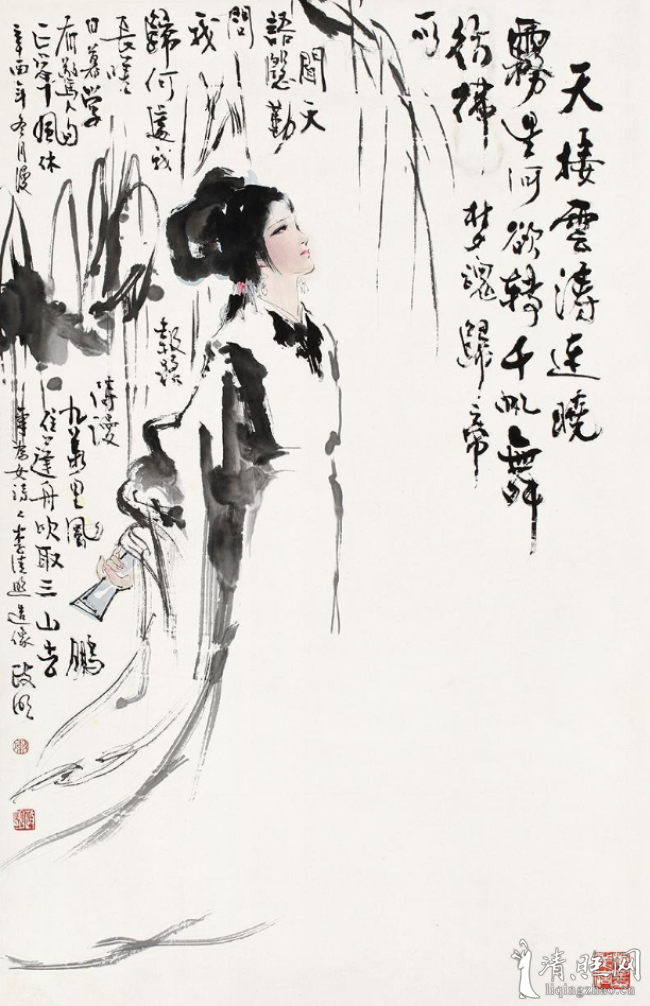 天接雲濤連曉
霧星河欲轉千帆舞
彷彿夢魂歸帝
所
聞天
語慇勤
問
我
歸何處我
報路
長嗟
日暮学
詩謾
有驚人句
九萬里風鵬
正举風休
住蓬舟吹取三山去
辛酉年冬月漫
筆为女詞人李清照造像
政明
清照网
liqingzhao.cn